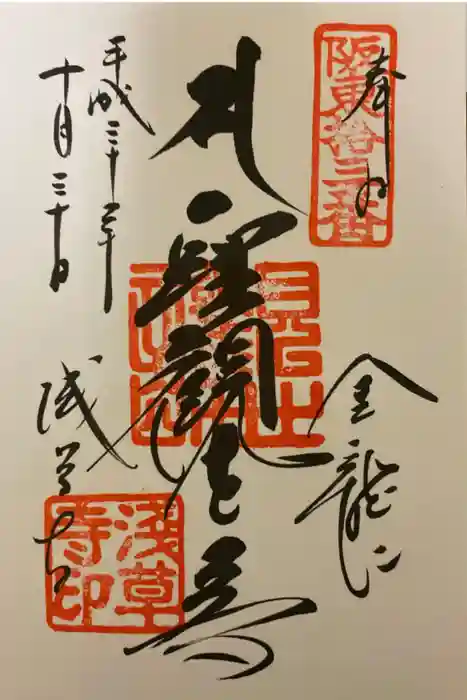 奉拝
阪東拾三番
金龍山
聖観世音
平成三十年
十月三十日
浅草寺
浅草寺印